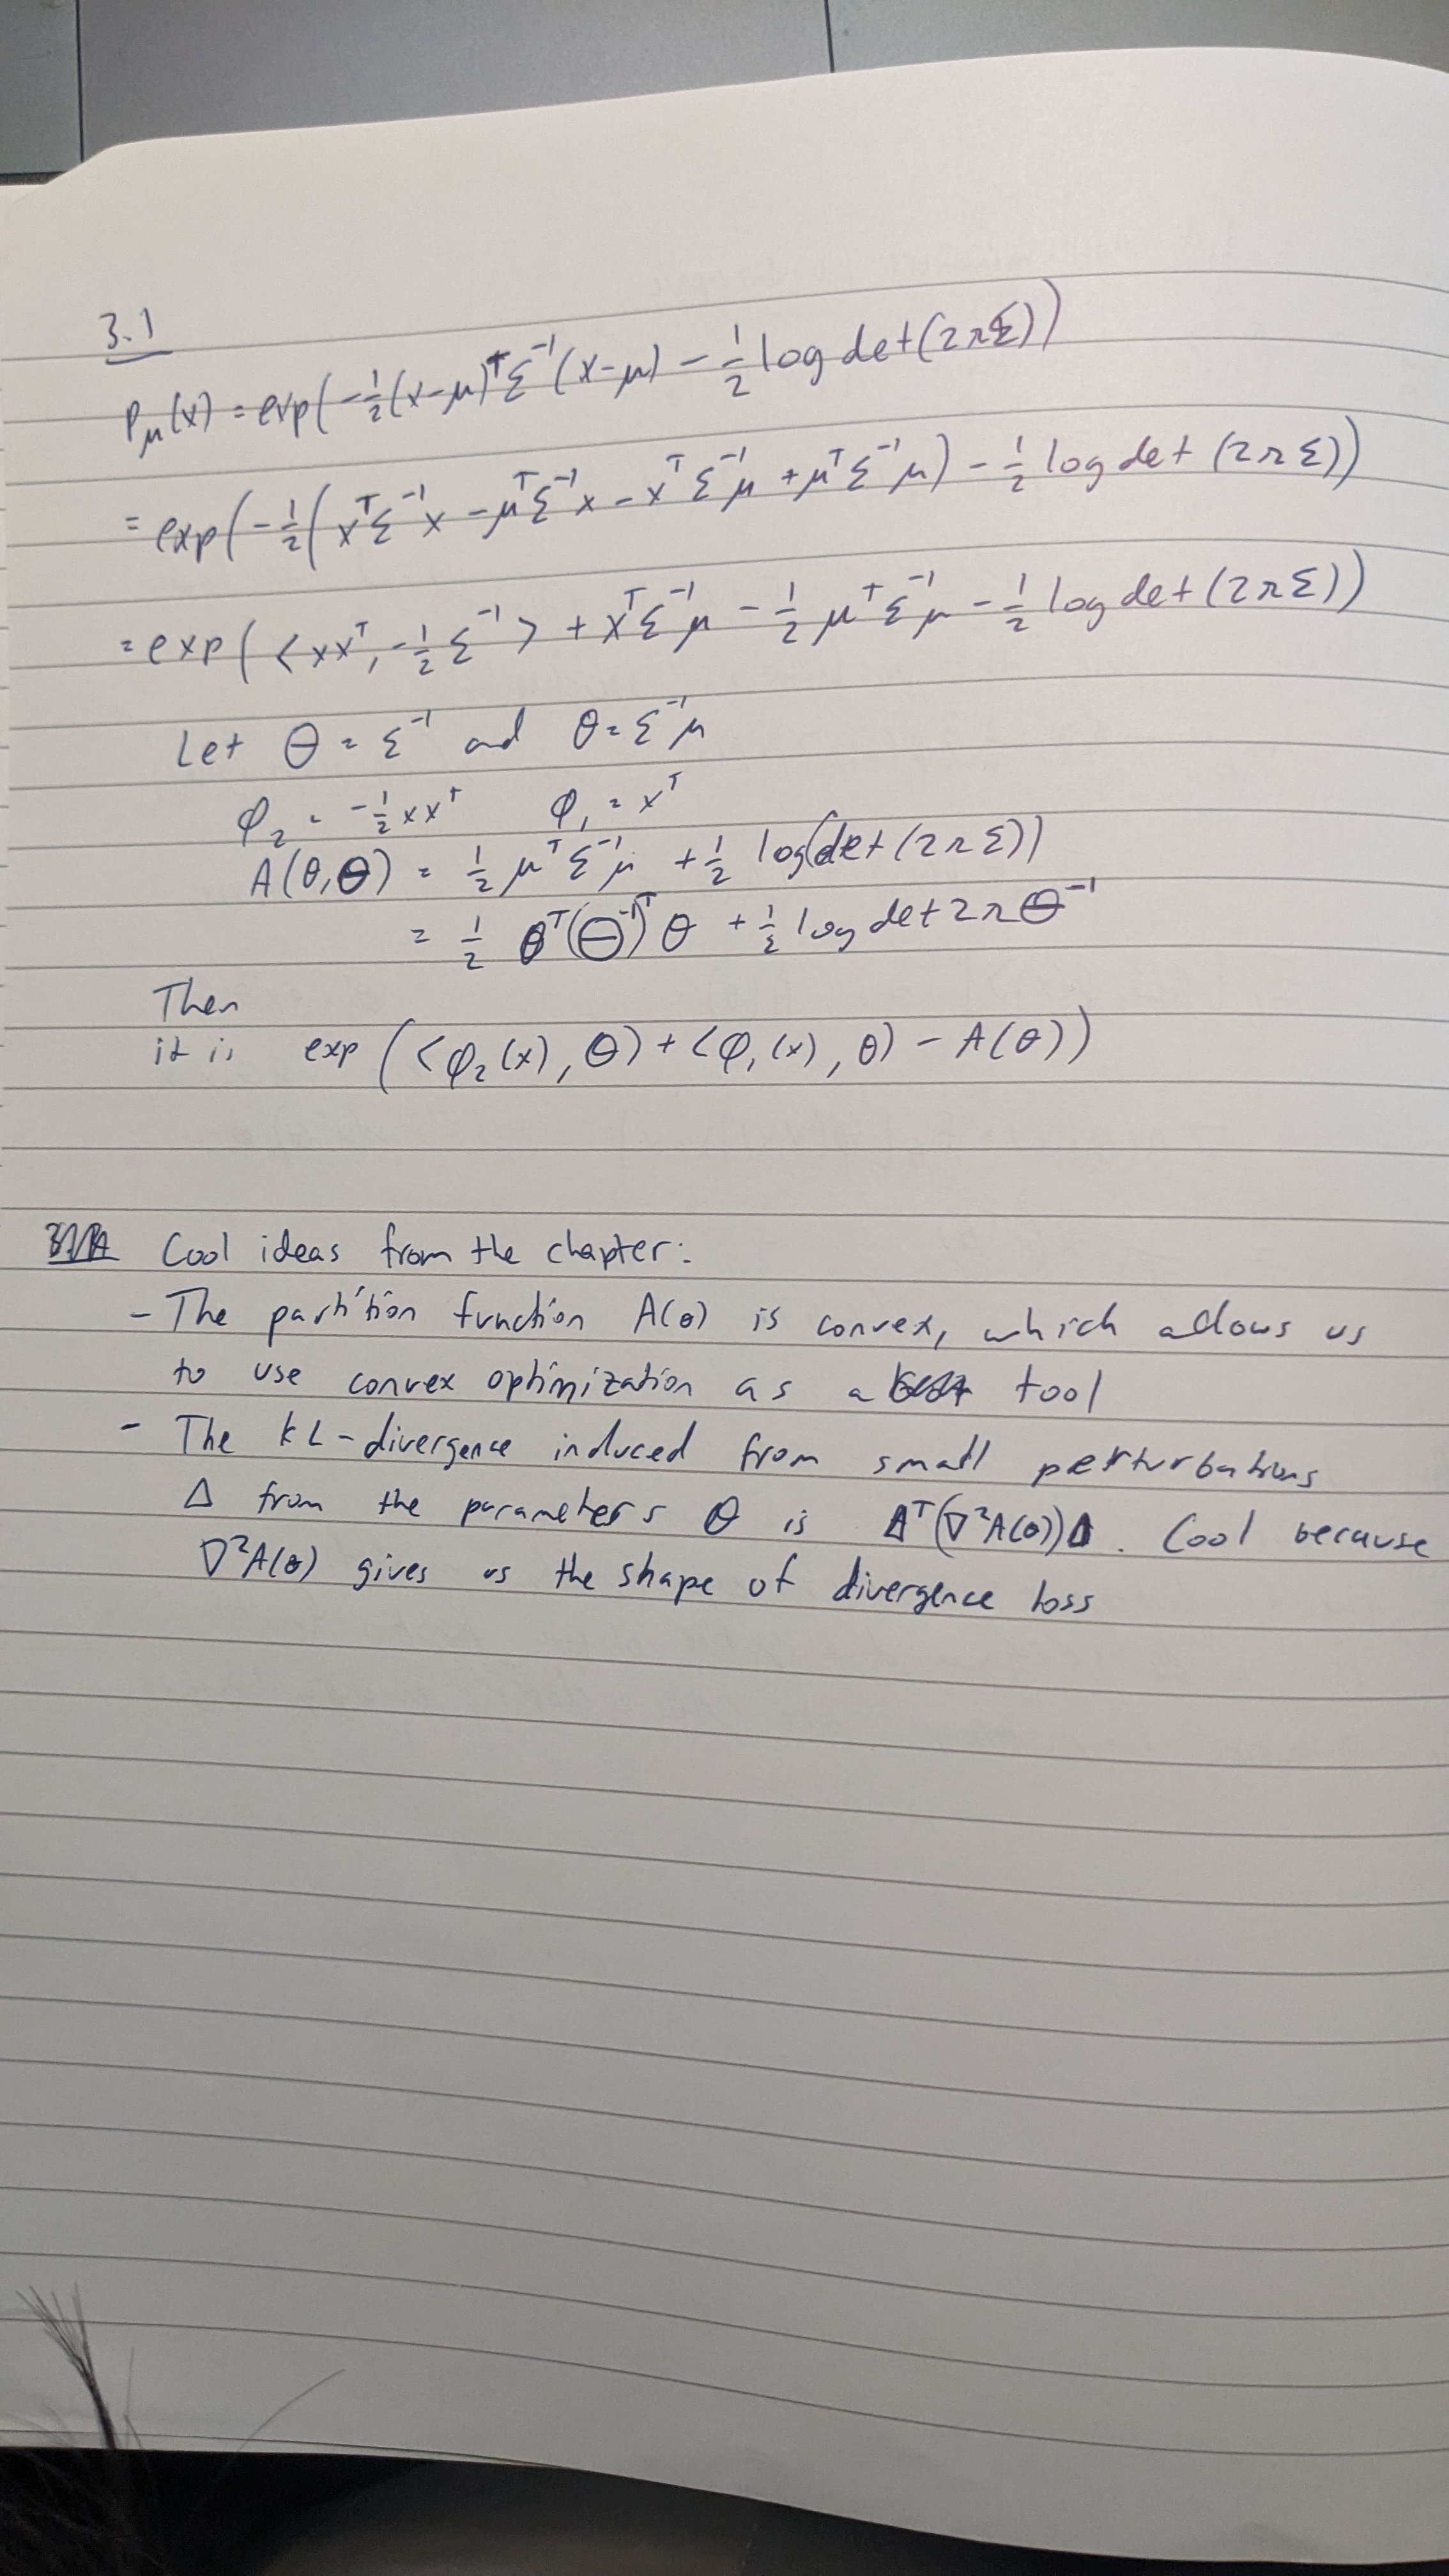 3.1
P_μ(x) = exp(-½(x-μ)ᵀΣ⁻¹(x-μ) - ½ log det(2πΣ))
= exp(-½(xᵀΣ⁻¹x - μᵀΣ⁻¹x - xᵀΣ⁻¹μ + μᵀΣ⁻¹μ) - ½ log det (2πΣ))
= exp(<xxᵀ, -½Σ⁻¹> + xᵀΣ⁻¹μ - ½ μᵀΣ⁻¹μ - ½ log det(2πΣ))
Let Θ = Σ⁻¹ and θ = Σ⁻¹μ
φ₂ = -½xxᵀ φ₁ = xᵀ
A(θ,Θ) = ½ μᵀΣ⁻¹μ + ½ log(det(2πΣ))
= ½ θᵀ(Θ⁻¹)ᵀθ + ½ log det 2πΘ⁻¹
Then
it is exp(<φ₂(x), Θ) + <φ₁(x), θ) - A(θ))
Cool ideas from the chapter:
- The partition function A(θ) is convex, which allows us
to use convex optimization as a tool
- The KL-divergence induced from small perturbations
Δ from the parameters θ is Δᵀ(∇²A(θ))Δ. Cool because
∇²A(θ) gives us the shape of divergence loss